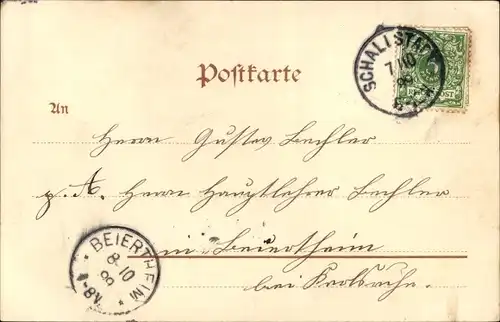 SCHALLSTADT
7/10
98
Postkarte
An
Herrn Gustav Bechler
p. A. Herrn Hauptlehrer Bechler
in Beiertheim
bei Karlsruhe.
BEIERTHEIM
8-10
98